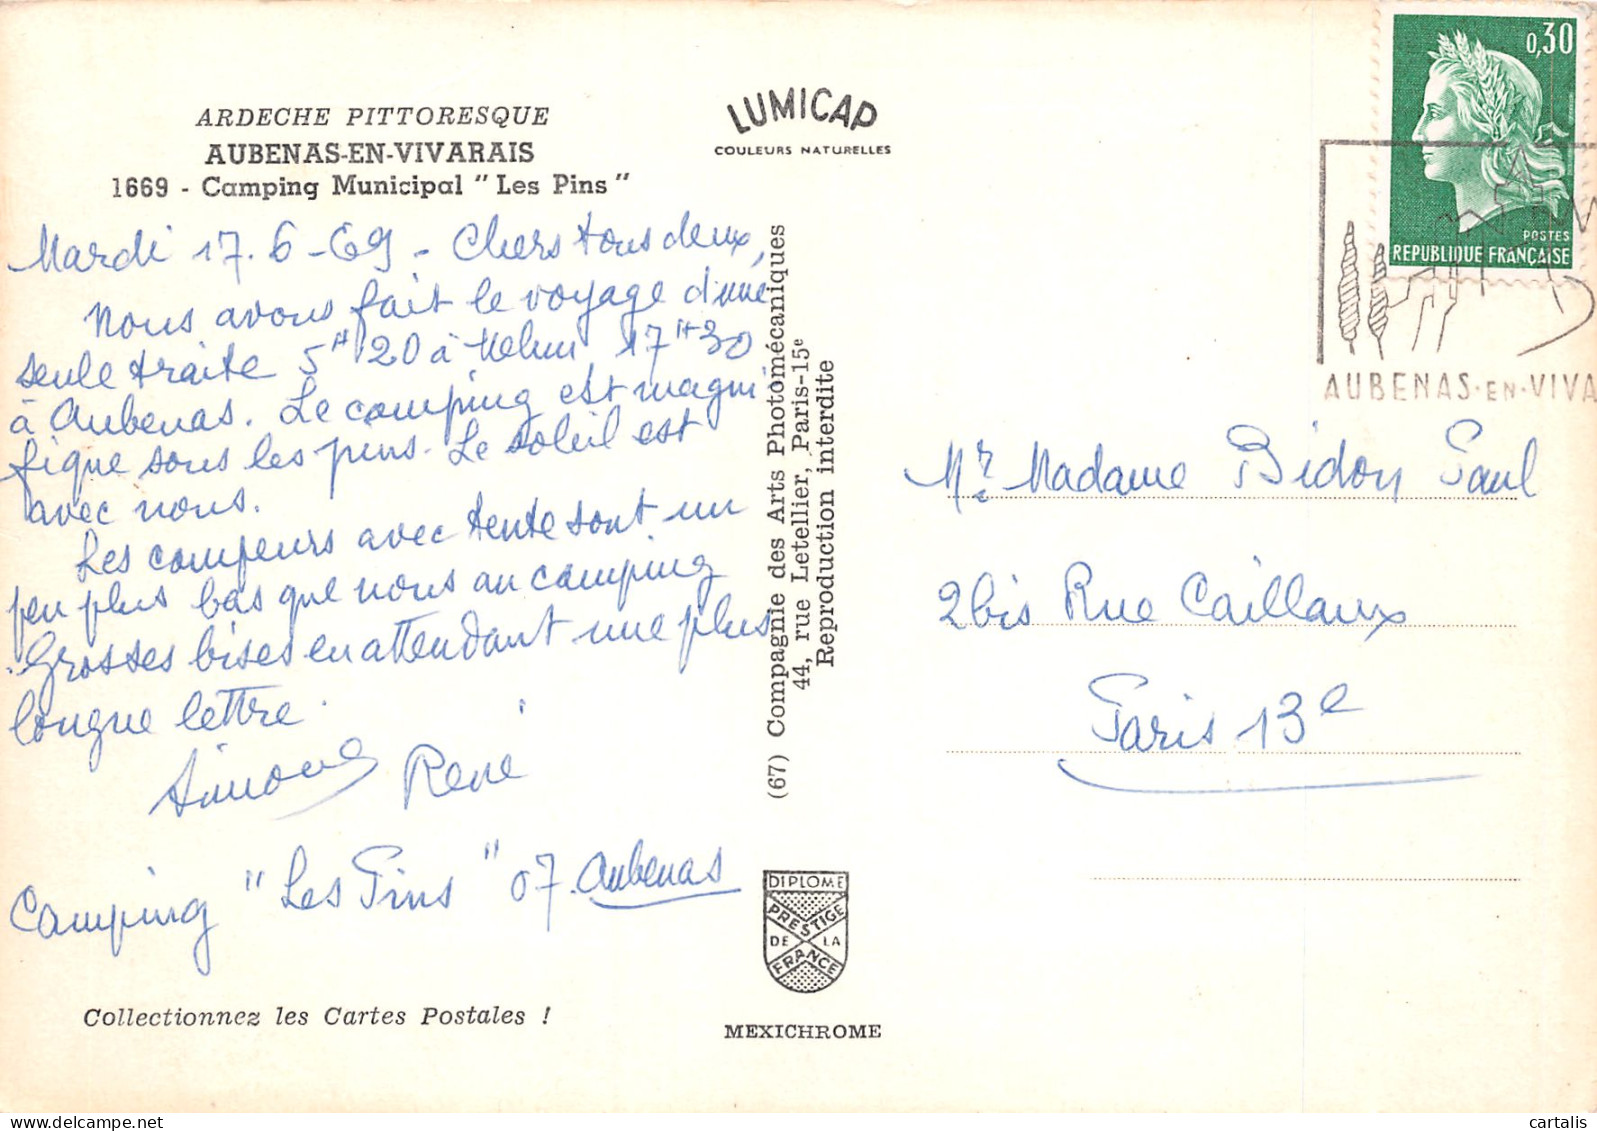 ARDECHE PITTORESQUE
AUBENAS-EN-VIVARAIS
1669 - Camping Municipal " Les Pins "
Mardi 17.6-69 - Chers tous deux,
Nous avons fait le voyage d'une
seule traite 5H20 à Melun 17H30
à Aubenas. Le camping est magni
fique sous les pins. Le soleil est
avec nous.
Les campeurs avec tente sont un
peu plus bas que nous au camping
Grosses bises en attendant une plus
longue lettre.
Simone René
Camping "Les Pins" 07. Aubenas
Collectionnez les Cartes Postales !
LUMICAP
COULEURS NATURELLES
(67) Compagnie des Arts Photomécaniques
44, rue Letellier, Paris-15e
Reproduction interdite
DIPLOME
PRESTIGE
DE LA
FRANCE
MEXICHROME
0,30
POSTES
REPUBLIQUE FRANÇAISE
AUBENAS·EN·VIVA
Mr Madame Bidon Paul
2bis Rue Caillaux
Paris 13e
cartalis